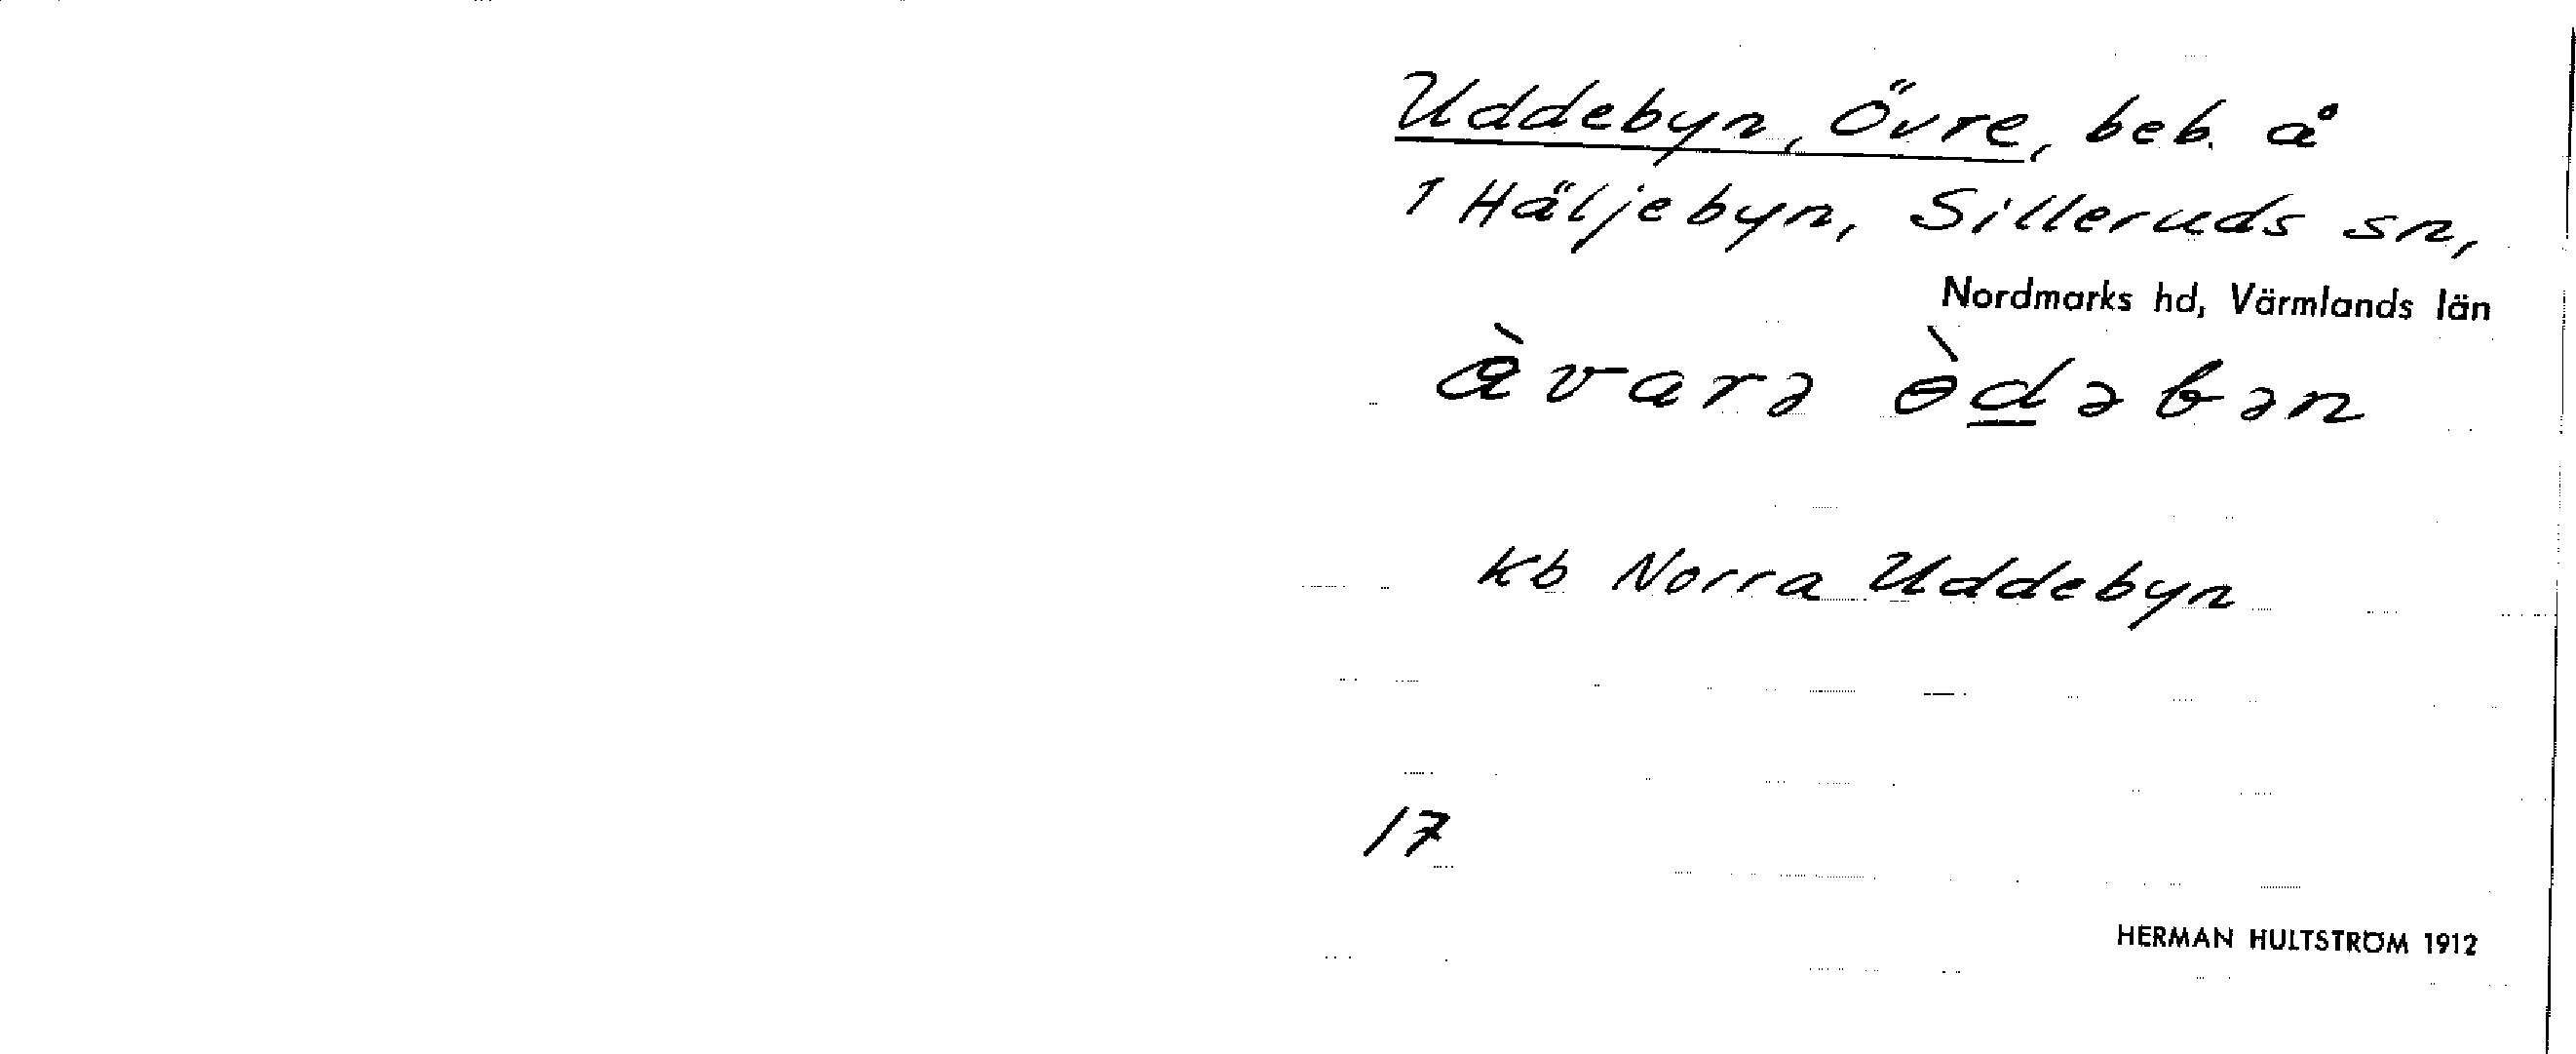 Uddebyn, Övre, beb. å
1 Häljebyn, Silleruds sn,
Nordmarks hd, Värmlands län
àvarə ɵ̀dəbən
Kb Norra Uddebyn
17
HERMAN HULTSTRÖM 1912